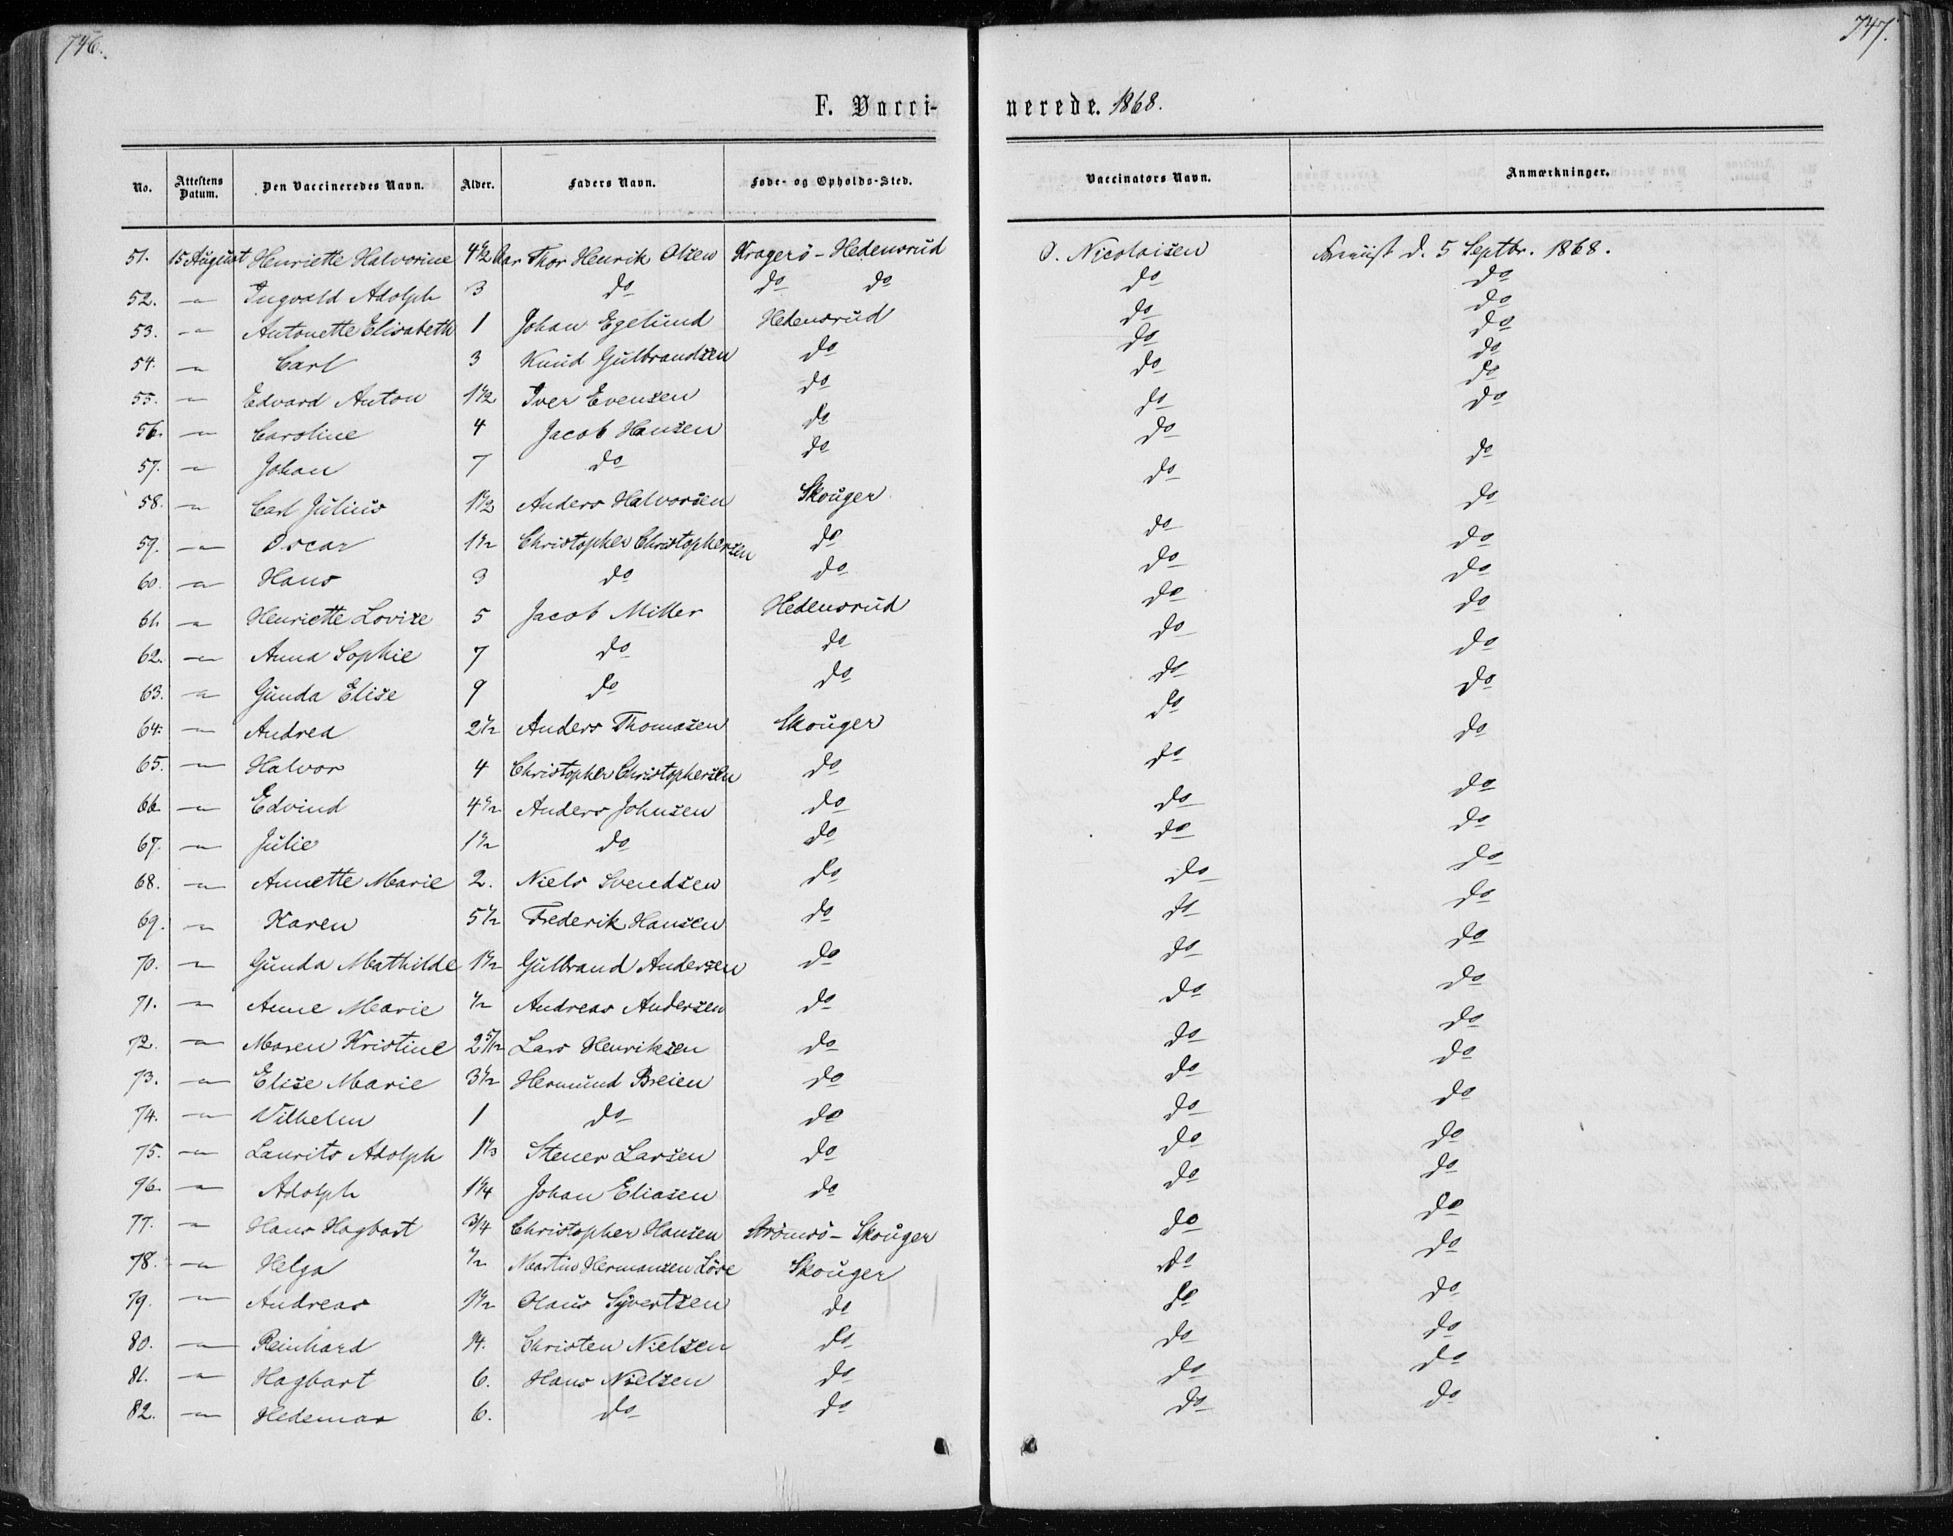 746.
747.
F. Vacci-
nerede. 1868.
No. Attestens Datum. Den Vaccineredes Navn. Alder. Faders Navn. Føde- og Opholds-Sted. Vaccinators Navn. Anmærkninger.
51. 15 August Henriette Halvorine 4 1/2 Aar Thor Henrik Olsen Kragerö - Hedensrud O. Nicolaisen d. 5 Septbr. 1868.
52. — Ingvald Adolph 3 do do do do do
53. — Antonette Elisabeth 1 Johan Egelund Hedensrud do do
54. — Carl 3 Knud Gulbrandsen do do do
55. — Edvard Anton 1 1/2 Iver Evensen do do do
56. — Caroline 4 Jacob Hansen do do do
57. — Johan 7 do do do do
58. — Carl Julius 1 1/2 Anders Halvorsen Skouger do do
59. — Oscar 1 1/2 Christopher Christophersen do do do
60. — Hans 3 do do do do
61. — Henriette Lovise 5 Jacob Miller Hedensrud do do
62. — Anna Sophie 7 do do do do
63. — Gunda Elise 9 do do do do
64. — Andrea 2 1/2 Anders Thomasen Skouger do do
65. — Halvor 4 Christopher Christophersen do do do
66 — Edvind 4 1/2 Anders Johnsen do do do
67. — Julie 1 1/2 do do do do
68. — Annette Marie 2. Niels Svendsen do do do
69. — Karen 5 1/2 Frederik Hansen do do do
70. — Gunda Mathilde 1 1/2 Gulbrand Andersen do do do
71. — Anne Marie 1/2 Andreas Andersen do do do
72. — Maren Kristine 2 5/12 Lars Henriksen do do do
73. — Elise Marie 3 1/2 Hermund Breien do do do
74. — Vilhelm 1 do do do do
75. — Laurits Adolph 1 1/3 Stener Larsen do do do
76. — Adolph 1 1/4 Johan Eliasen do do do
77. — Hans Hagbart 3/4 Christopher Hansen Strömsö - Skouger do do
78. — Helga 1/2 Martin Hermansen Löse Skouger do do
79. — Andreas 1 1/2 Olaus Syvertsen do do do
80. — Reinhard Christen Nielsen do do do
81. — Hagbart 6. Hans Nielsen do do do
82. — Hedemar 6. do do do do